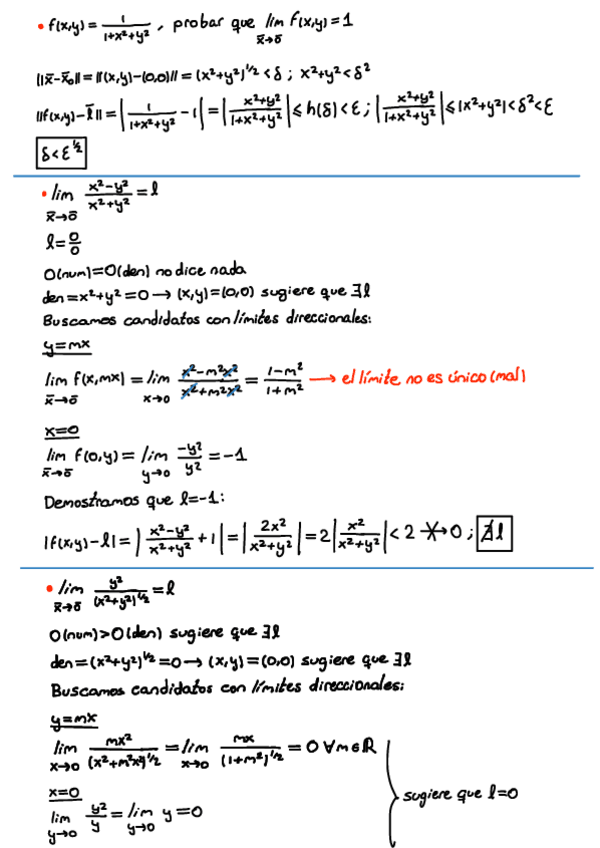 • f(x,y) = 1/(1+x²+y²), probar que lim_{x̄→ō} f(x,y) = 1
||x̄-x̄₀|| = ||(x,y)-(0,0)|| = (x²+y²)^{1/2} < δ ; x²+y² < δ²
||f(x,y)-l̄|| = |1/(1+x²+y²) - 1| = |(x²+y²)/(1+x²+y²)| ≤ h(δ) < ε ; |(x²+y²)/(1+x²+y²)| ≤ |x²+y²| < δ² < ε
δ < ε^{1/2}
• lim_{x̄→ō} (x²-y²)/(x²+y²) = l
l = 0/0
O(num)=O(den) no dice nada
den = x²+y² = 0 → (x,y)=(0,0) sugiere que ∃l
Buscamos candidatos con límites direccionales:
y=mx
lim_{x̄→ō} f(x,mx) = lim_{x→0} (x²-m²x²)/(x²+m²x²) = (1-m²)/(1+m²) → el límite no es único (mal)
x=0
lim_{x̄→ō} f(0,y) = lim_{y→0} -y²/y² = -1
Demostramos que l=-1:
|f(x,y)-l| = |(x²-y²)/(x²+y²) + 1| = |2x²/(x²+y²)| = 2|x²/(x²+y²)| < 2 ↛ 0 ; ∄l
• lim_{x̄→ō} y²/(x²+y²)^{1/2} = l
O(num)>O(den) sugiere que ∃l
den = (x²+y²)^{1/2} = 0 → (x,y)=(0,0) sugiere que ∃l
Buscamos candidatos con límites direccionales:
y=mx
lim_{x→0} mx²/(x²+m²x²)^{1/2} = lim_{x→0} mx/(1+m²)^{1/2} = 0 ∀m∈ℝ
x=0
lim_{y→0} y²/y = lim_{y→0} y = 0
sugiere que l=0